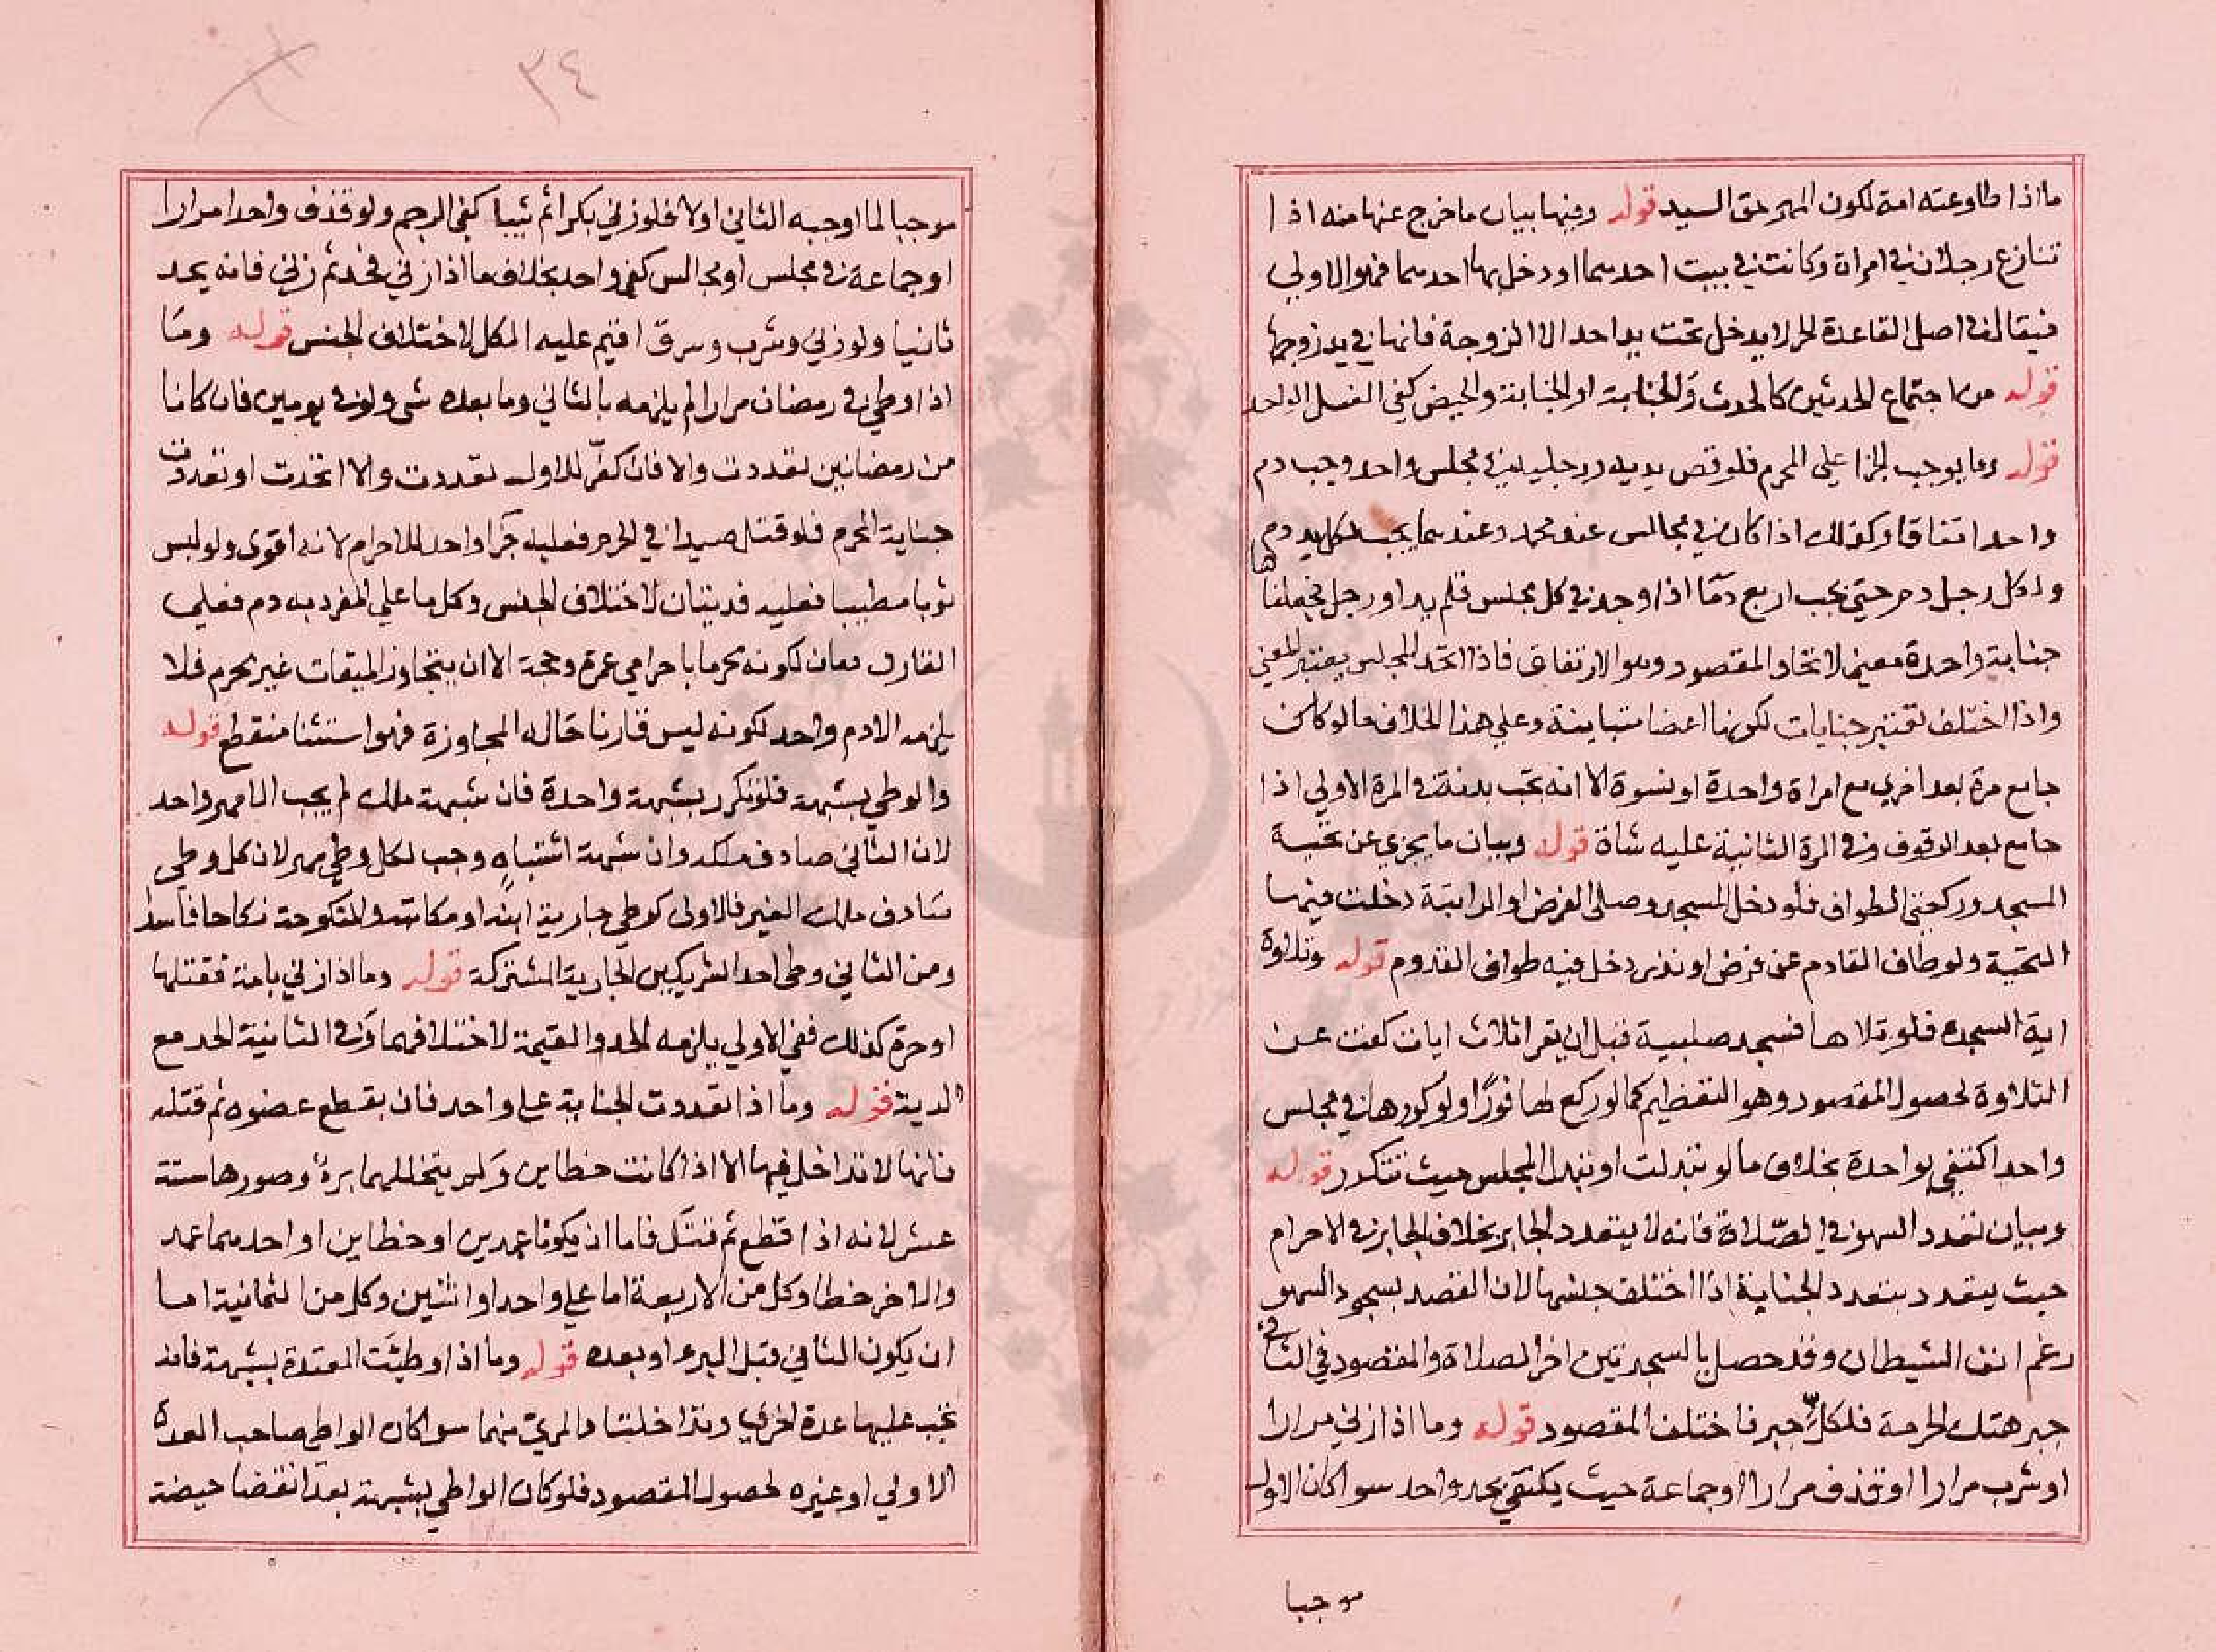 ما اذا طاوعته امة لكون المهر حق السيد قوله وفيها بيان ما خرج عنها منه اذا
تنازع رجلان في امراة وكانت في بيت احدهما او دخل بها احدهما فهو الاولى
فيقال في اصل القاعدة الحر لا يدخل تحت يد احد الا الزوجة فانها في يد زوجها
قوله من اجتماع الحدثين كالحدث والجنابة او الجنابة والحيض كفى الغسل الواحد
قوله وما يوجب الجزا على المحرم فلو قص يديه ورجليه في مجلس واحد وجب دم
واحد اتفاقا وكذلك اذا كان في مجالس عند محمد وعندهما يجب لكل يد دم
ولكل رجل دم حتى يجب اربع دما اذا وجد في كل مجلس قلم يد او رجل فجعلناها
جناية واحدة معنى لاتحاد المقصود وهو الارتفاق فاذا اتحد المجلس يعتبر المعنى
واذا اختلف تعتبر جنايات لكونها اعضا متباينة وعلى هذا الخلاف ما لو كان
جامع مرة بعد اخرى مع امراة واحدة او نسوة الا انه تجب بدنة في المرة الاولى اذا
جامع بعد الوقوف وفي المرة الثانية عليه شاة قوله وبيان ما يجزي عن تحية
المسجد وركعتي الطواف فلو دخل المسجد وصلى الفرض او الراتبة دخلت فيها
التحية ولو طاف القادم عن فرض او نذر دخل فيه طواف القدوم قوله وتلاوة
اية السجدة فلو تلاها فسجد صلبية قبل ان يقرا ثلاث ايات كفت عن
التلاوة لحصول المقصود وهو التعظيم كما لو ركع لها فورا ولو كررها في مجلس
واحد اكتفى بواحدة بخلاف ما لو تبدلت او تبدل المجلس حيث تتكرر قوله
وبيان تعدد السهو في الصلاة فانه لا يتعدد الجابر بخلاف الجابر في الاحرام
حيث يتعدد بتعدد الجناية اذا اختلف جنسها لان القصد بسجود السهو
رغم انف الشيطان وقد حصل بالسجدتين اخر الصلاة والمقصود في الثاني
جبر هتك الحرمة فلكل جبر فاختلف المقصود قوله وما اذا زنى مرارا
او شرب مرارا او قذف مرارا او جماعة حيث يكتفى بحد واحد سوا كان الاول
موجبا
٣٤
موجبا لما اوجبه الثاني او لا فلو زنى بكرا ثم ثيبا كفى الرجم ولو قذف واحدا مرارا
او جماعة في مجلس او مجالس كفى واحد بخلاف ما اذا زنى فحد ثم زنى فانه يحد
ثانيا ولو زنى وشرب وسرق اقيم عليه الكل لاختلاف الجنس قوله وما
اذا وطي في رمضان مرارا لم يلزمه بالثاني وما بعده شي ولو في يومين فان كانا
من رمضانين تعددت والا فان كفر للاول تعددت والا اتحدت او تعددت
جناية المحرم فلو قتل صيدا في الحرم فعليه جزا واحد للاحرام لانه اقوى ولو لبس
ثوبا مطيبا فعليه فديتان لاختلاف الجنس وكل ما على المفرد به دم فعلى
القارن دمان لكونه محرما باحرامي عمرة وحجة الا ان يتجاوز الميقات غير محرم فلا
يلزمه الا دم واحد لكونه ليس قارنا حالة المجاوزة فهو استثنا منقطع قوله
والوطي بشبهة فلو تكرر بشبهة واحدة فان شبهة ملك لم يجب الا مهر واحد
لان الثاني صادف ملكه وان شبهة اشتباه وجب لكل وطي مهر لان كل وطي
صادف ملك الغير فالاولى كوطي جارية ابنه او مكاتبه والمنكوحة نكاحا فاسدا
ومن الثاني وطي احد الشريكين الجارية المشتركة قوله وما اذا زنى بامة فقتلها
او حرة كذلك ففي الاولى يلزمه الحد والقيمة لاختلافهما وفي الثانية الحد مع
الدية قوله وما اذا تعددت الجناية على واحد فان بقطع عضوه ثم قتله
فانها لا تداخل فيها الا اذا كانت خطاين ولم يتخللهما برء وصورها ستة
عشر لانه اذا قطع ثم قتل فاما ان يكونا عمدين او خطاين او احدهما عمد
والاخر خطا وكل من الاربعة اما على واحد او اثنين وكل من الثمانية اما
ان يكون الثاني قبل البرء او بعده قوله وما اذا وطئت المعتدة بشبهة فانه
تجب عليها عدة اخرى وتداخلتا والمرئ منهما سوا كان الواطي صاحب العدة
الاولى او غيره لحصول المقصود فلو كان الواطي بشبهة بعد انقضا حيضة